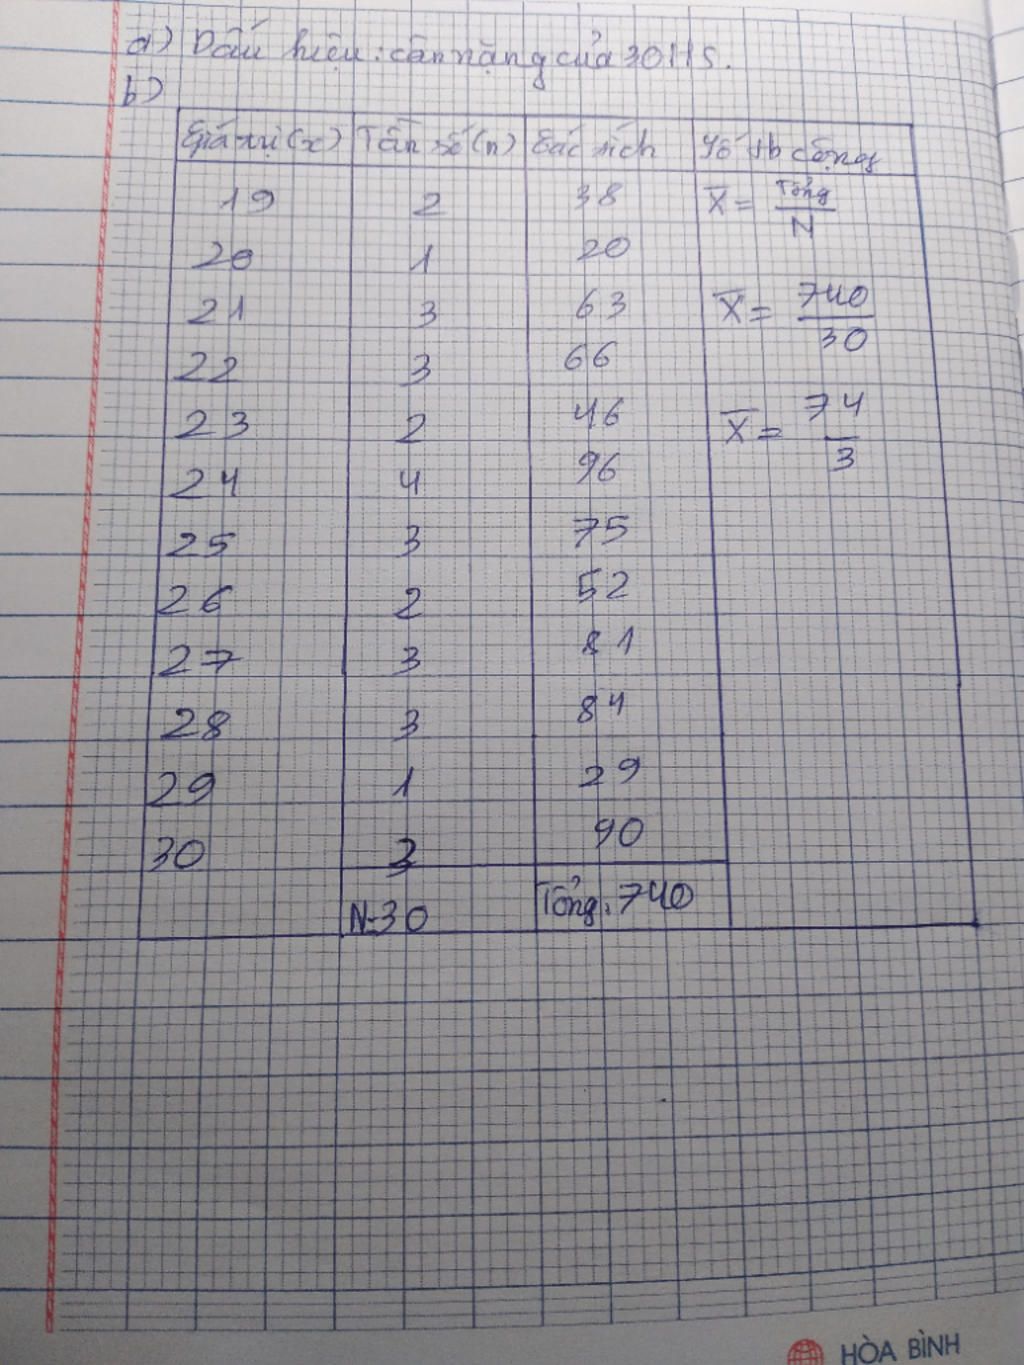 a) Dấu hiệu: cân nặng của 30 HS.
b)
Giá trị (x) Tần số (n) Các tích Số tb cộng
19 2 38 X̅ = Tổng/N
20 1 20
21 3 63 X̅ = 740/30
22 3 66
23 2 46 X̅ = 74/3
24 4 96
25 3 75
26 2 52
27 3 81
28 3 84
29 1 29
30 3 90
N=30 Tổng: 740
HÒA BÌNH